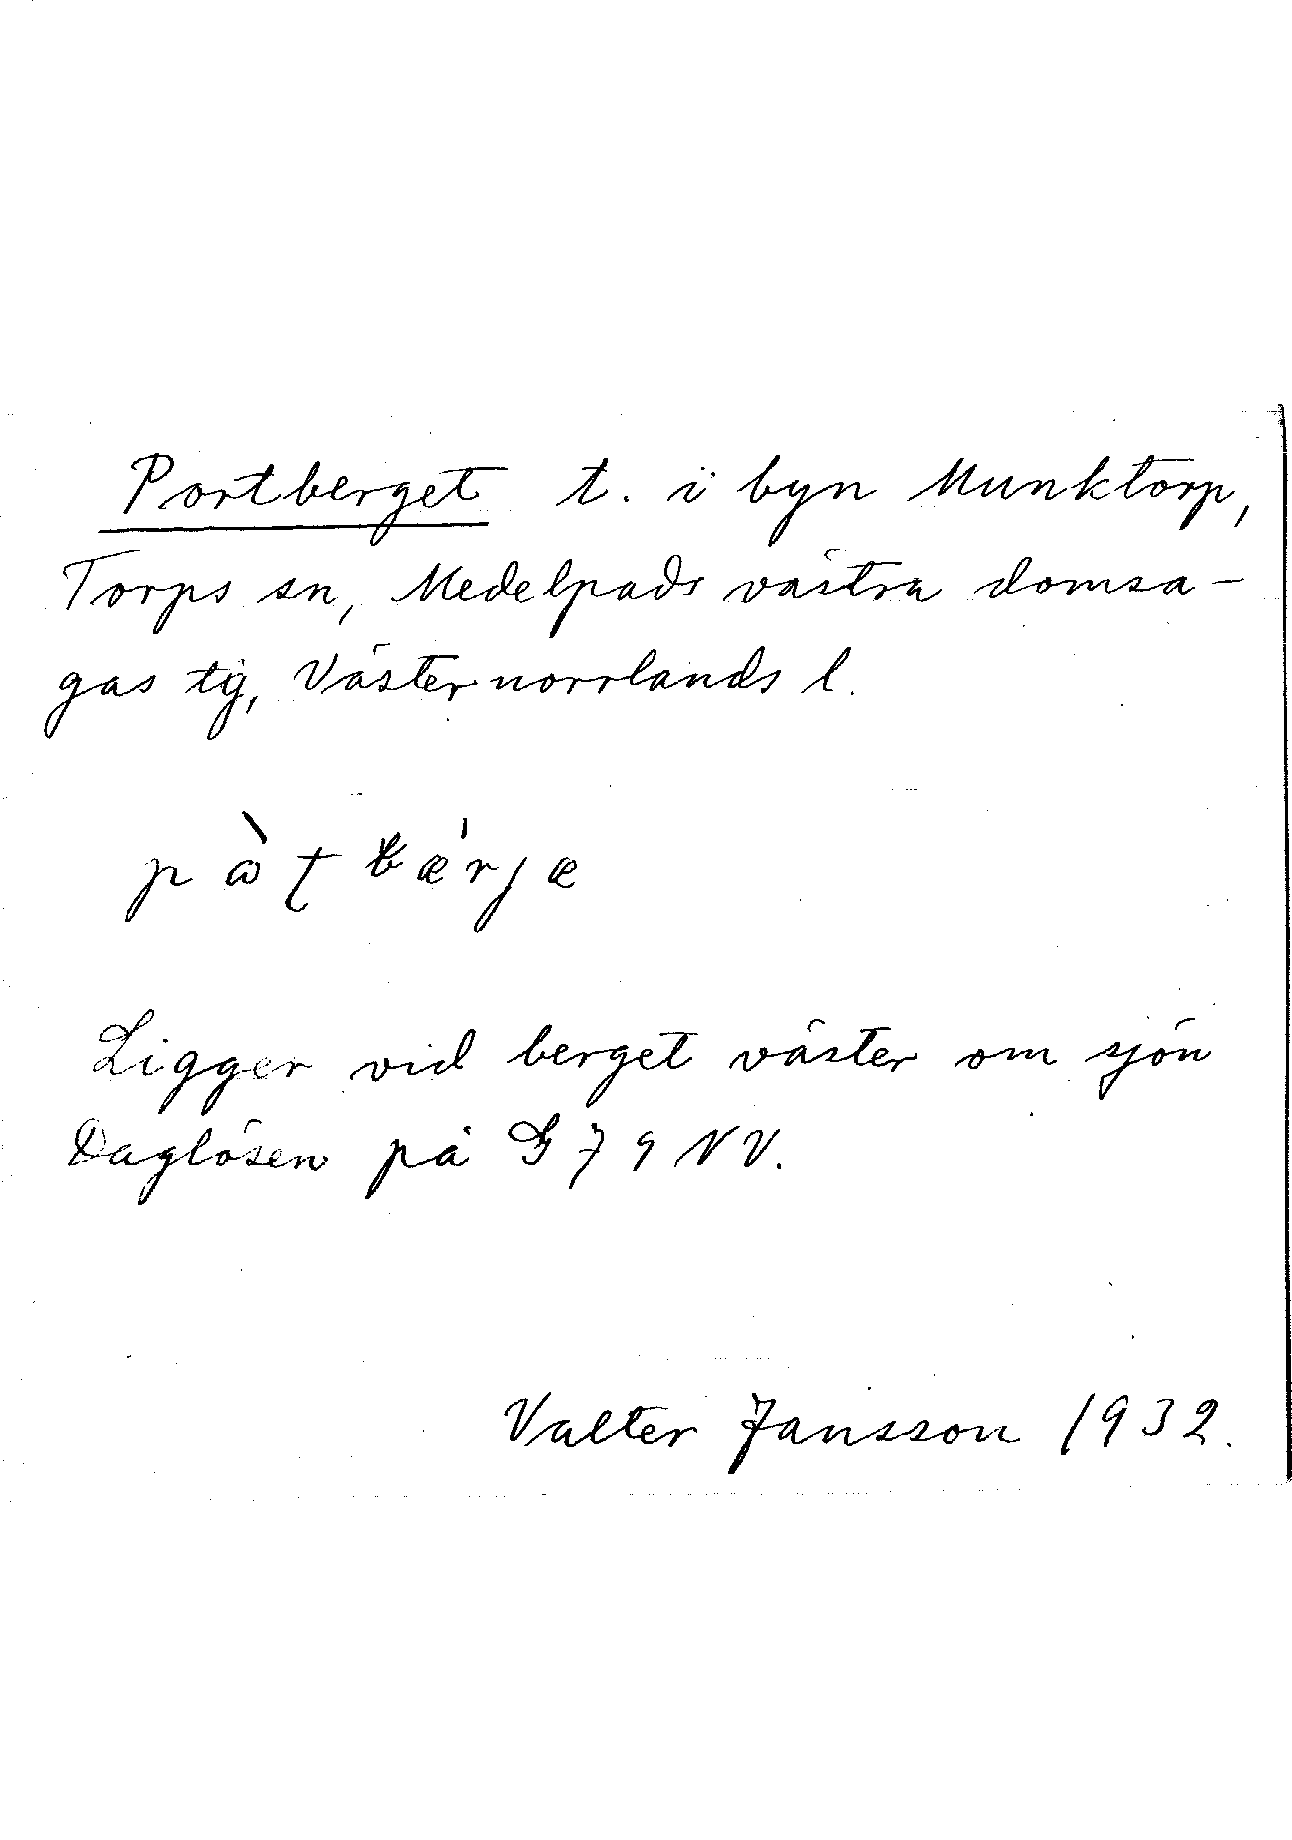 Portberget t. i byn Munktorp,
Torps sn, Medelpads västra domsa-
gas tg, Västernorrlands l.
Ligger vid berget väster om sjön
Daglösen på G 79 NV.
Valter Jansson 1932.